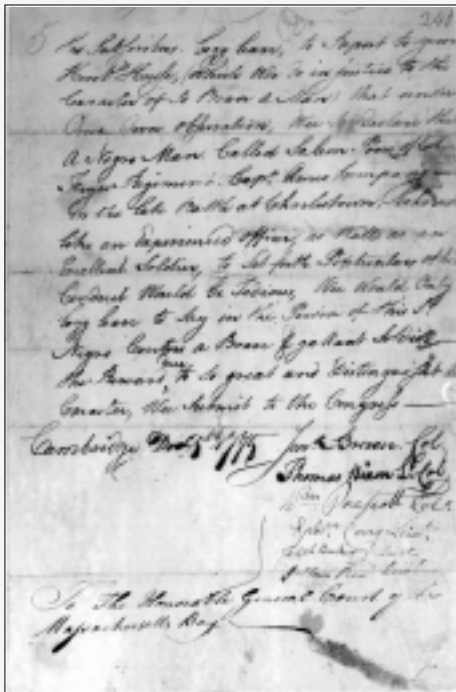 241
The Subscribers begg leave, to Report to your
Honble House, which Wee do in justice to the
Caracter of So Brave a Man that under
Our Own observation, Wee declare that
A Negro Man Called Salem Poor of Col
Fryes Regiment. Capt. Ames Company
in the late Battle at Charlestown, behaved
like an Experienced officer, as Well as an
Excellent Soldier, to Set forth Particulars of his
Conduct Would be Tedious, Wee Would Only
begg leave to Say in the Person of this Sd.
Negro Centers a Brave & gallant Soldier
the Reward due to So great and Distinguisht a
Caracter, Wee Submit to the Congress
Cambridge Decr 5th 1775
Jona. Brewer Col
Thomas Nixon Lt. Col
Wm Prescott Colo.
Ephm. Corey Lieut.
Lieut
To The Honorable General Court of the
Massachusetts Bay